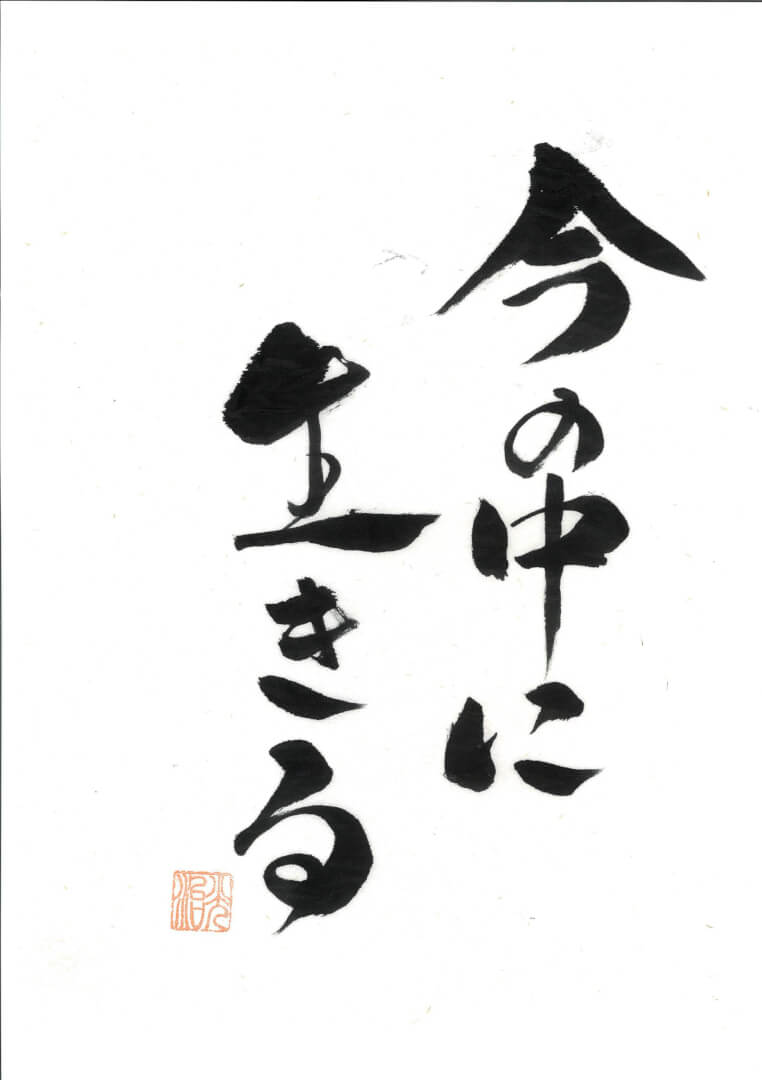 今の中に
生きる